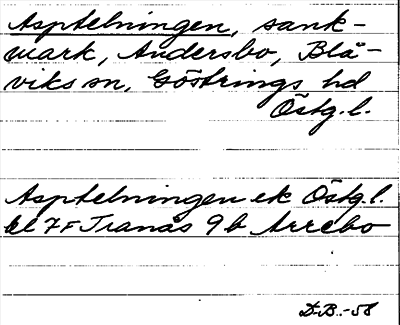 Asptelningen, sank-
mark, Andersbo, Blå-
viks sn, Göstrings hd
Östg.l.
Asptelningen ek Östg.l.
bl 7F Tranås 9b Arrebo
D.B.-58